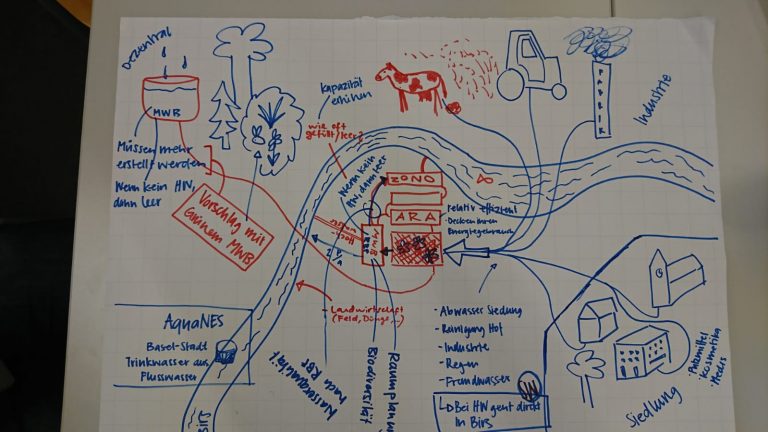 Dezentral
MWB
Müssen mehr
erstellt werden
Wenn kein HW,
dann leer
Vorschlag mit
Grünem MWB
Kapazität
erhöhen
wie oft
gefüllt/leer?
Wenn kein
HW, dann leer
OZONO
ARA
relativ effizient
Decken ihren
Energiegebrauch
FABRIK
Industrie
MWB
KBF
- Landwirtschaft
(Feld, Dünge,..)
AquaNES
Basel-Stadt
Trinkwasser aus
Flusswasser
Wasserqualität
nach KBF
Biodiversität
Raumplanung
- Abwasser Siedlung
- Reinigung Hof
- Industrie
- Regen
- Fremdwasser
Bei HW geht direkt
in Birs
Putzmittel
Kosmetika
Medis
Siedlung